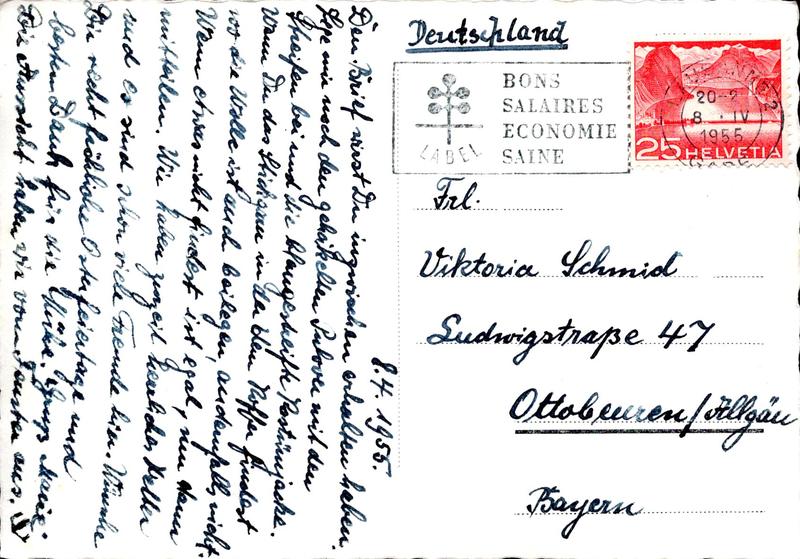 8.4.1955.
Den Brief wirst Du inzwischen erhalten haben.
Lege mir noch den gehäkelten Pulover mit den
Streifen bei und die blaugestreifte Kostümjacke.
Wenn Du das Stickgarn in den Koffer findest
wo die Wolle ist auch beilegen, andernfalls nicht.
Wenn etwas nicht findest ist egal, nur dann
mitteilen. Wir haben zurzeit herrliches Wetter
und es sind schon viele Fremde hier. Wünsche
Dir recht fröhliche Osterfeiertage und
besten Dank für die Mühe. Gruß Marie.
Die Aussicht haben wir vom Fenster aus.
Deutschland
LABEL
BONS
SALAIRES
ECONOMIE
SAINE
20-2
8. IV
1955
25 HELVETIA
Frl.
Viktoria Schmid
Ludwigstraße 47
Ottobeuren/Allgäu
Bayern